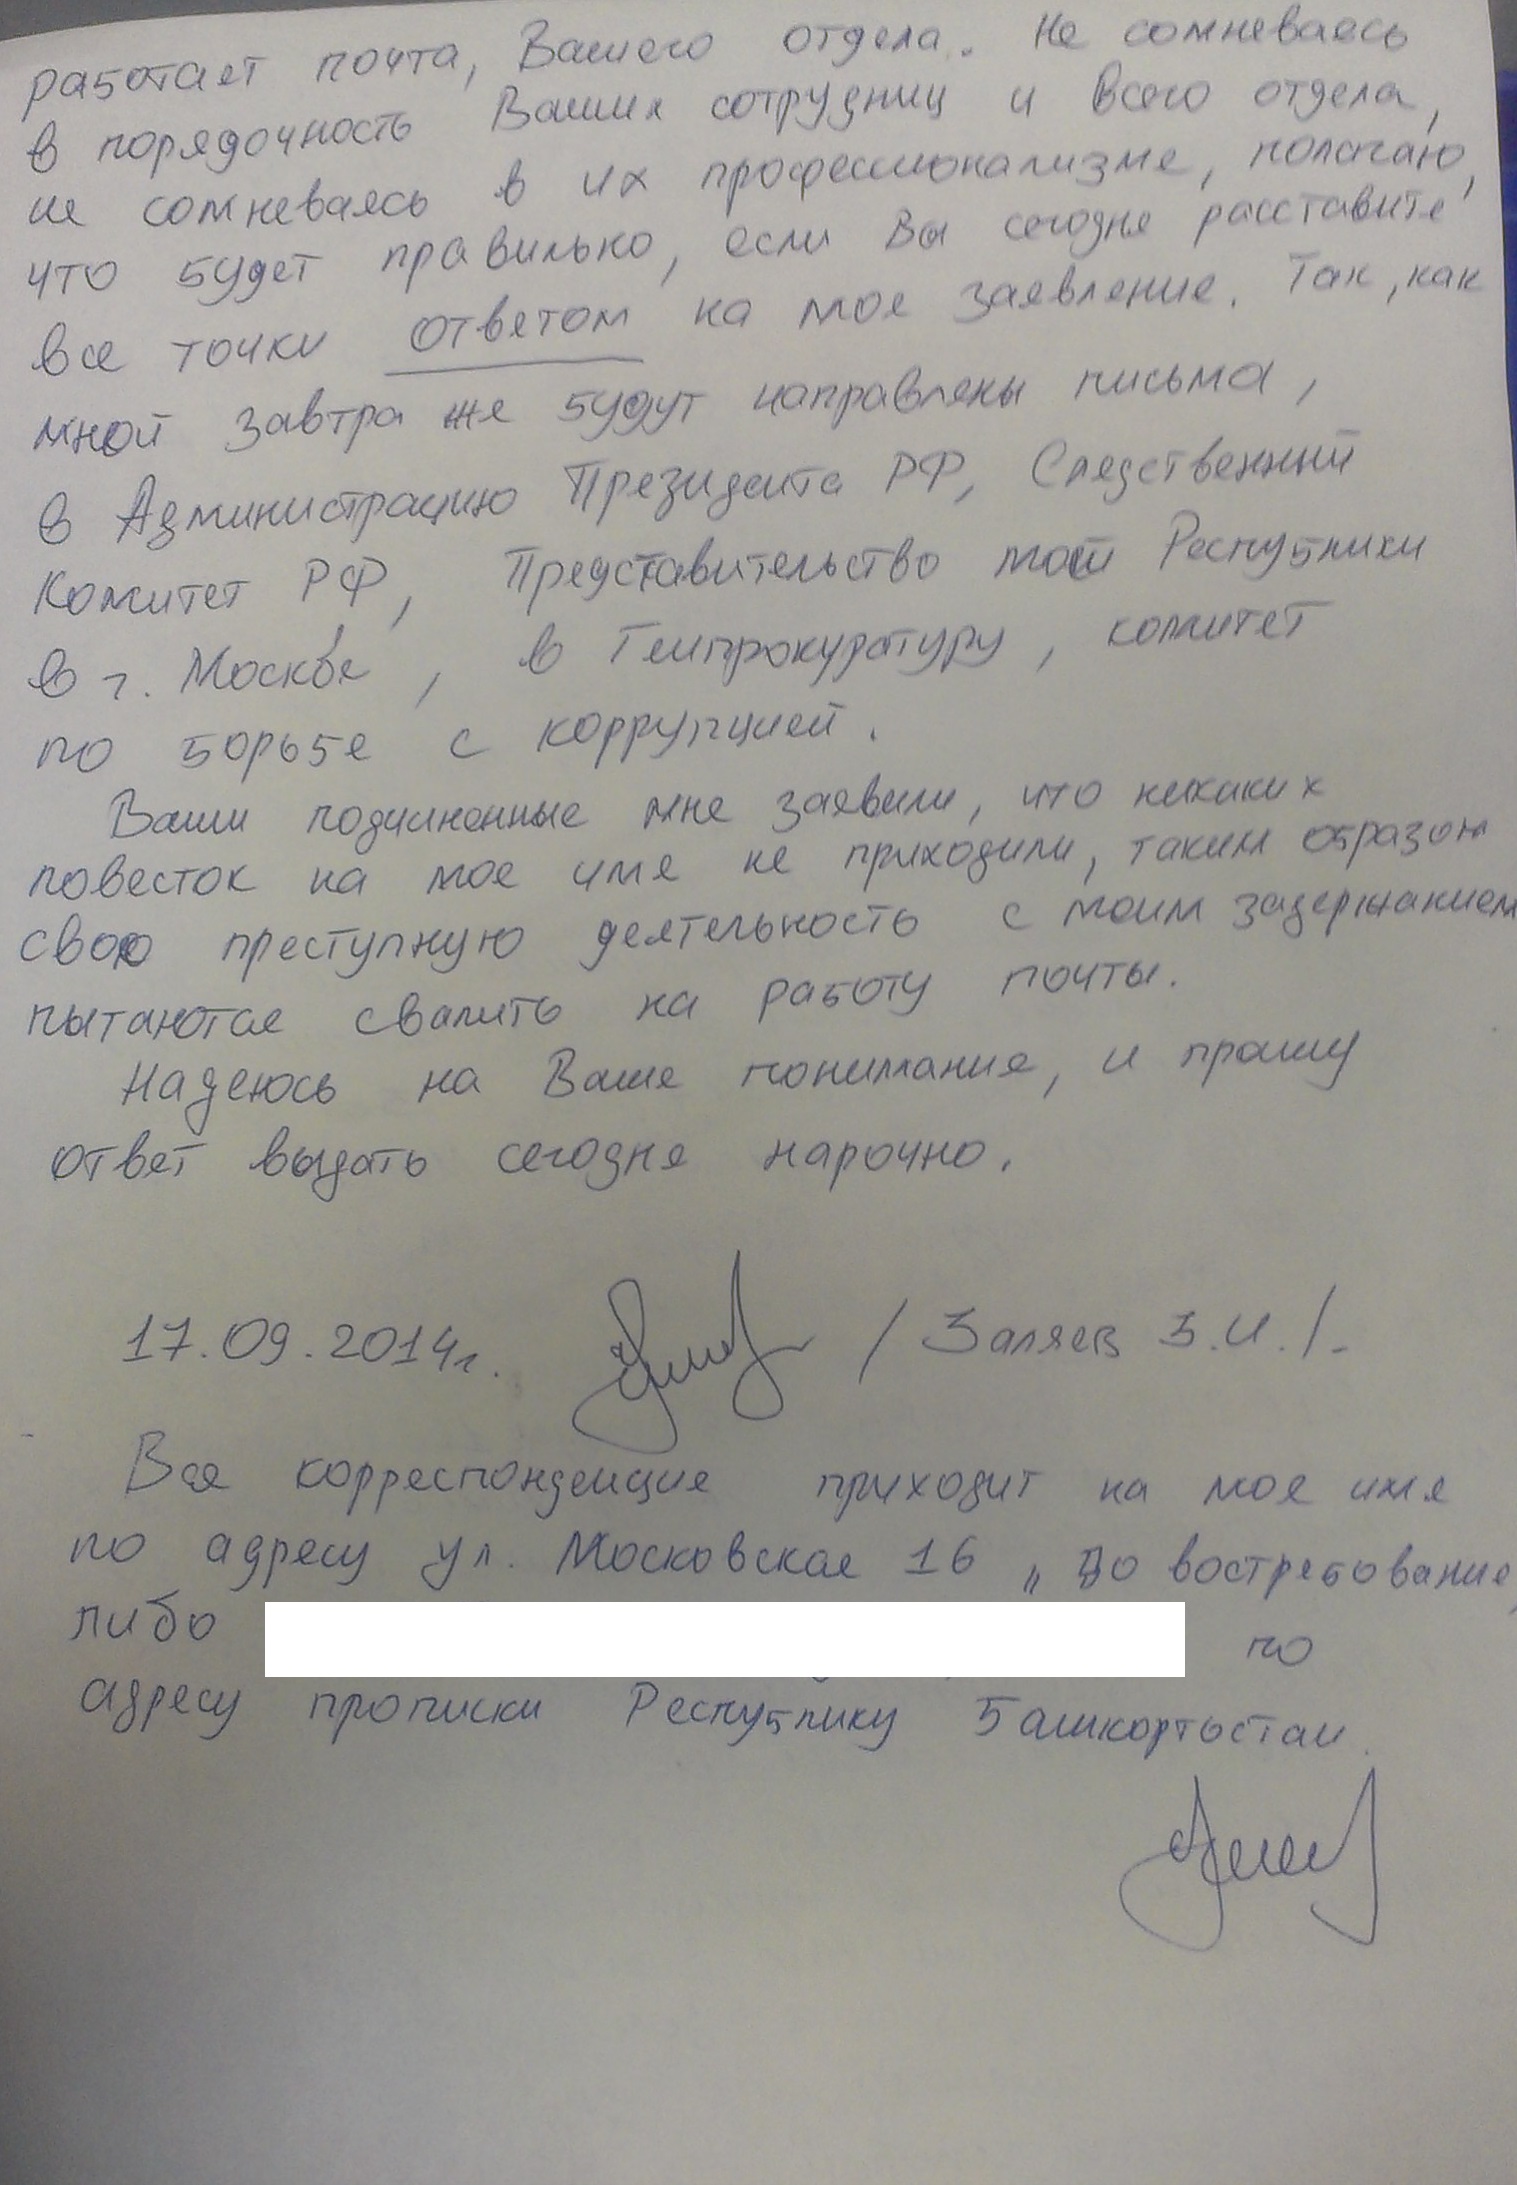 работает почта, Вашего отдела. Не сомневаясь
в порядочность Ваших сотрудниц и всего отдела,
не сомневаясь в их профессионализме, полагаю,
что будет правильно, если Вы сегодня расставите
все точки ответом на мое заявление. Так, как
мной завтра же будут направлены письма,
в Администрацию Президента РФ, Следственный
Комитет РФ, Представительство моей Республики
в г. Москве, в Генпрокуратуру, комитет
по борьбе с коррупцией.
Ваши подчиненные мне заявили, что никаких
повесток на мое имя не приходили, таким образом
свою преступную деятельность с моим задержанием
пытаются свалить на работу почты.
Надеюсь на Ваше понимание, и прошу
ответ выдать сегодня нарочно.
17.09.2014г. / Заляев З.И./.
Вся корреспонденция приходит на мое имя
по адресу ул. Московская 16 „До востребование,
либо по
адресу прописки Республику Башкортостан.